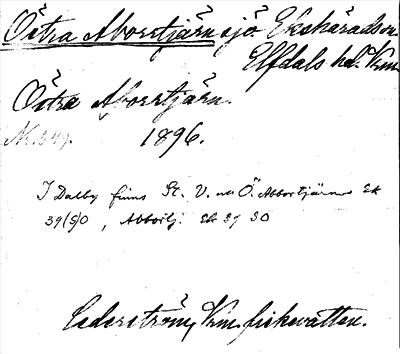 Östra Aborrtjärn sjö Ekshärads sn.
Elfdals hd. Vrm.
Östra Aborrtjärn.
N. 549. 1896.
I Dalby finns St. V. o. Ö. Abbortjärn Ek
39(5)0, Abbortj. Ek 39 30
Cederström, Vrm. fiskevatten.